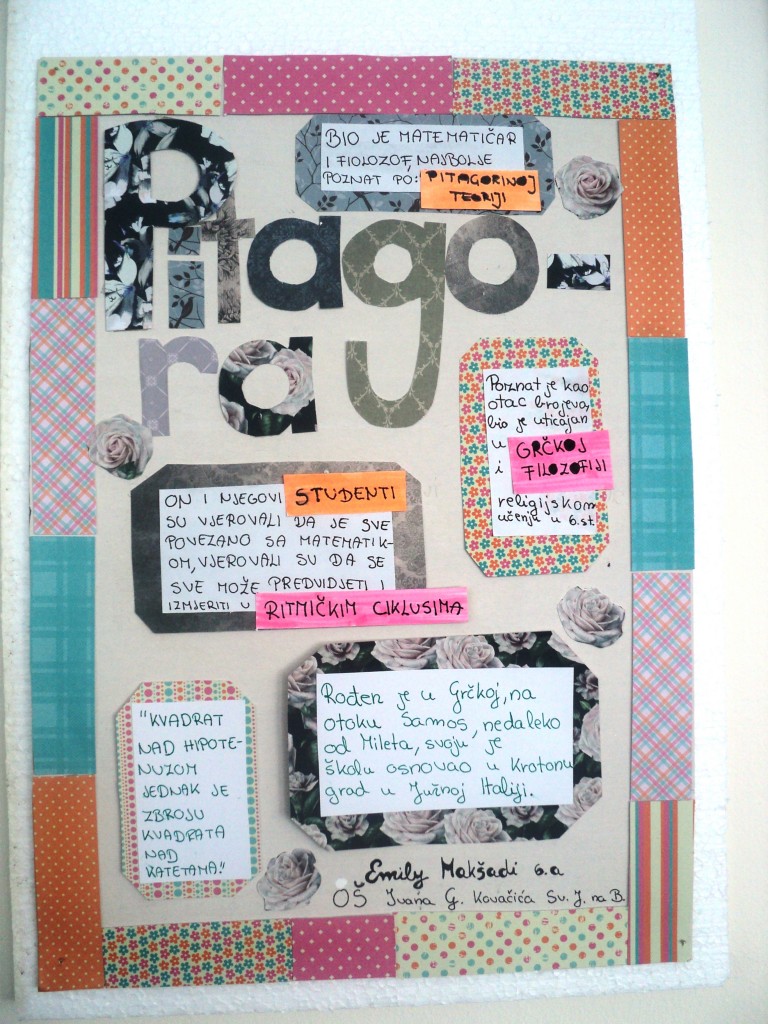 Pitago-
ra
BIO JE MATEMATIČAR
I FIOLOZOF, NAJBOLJE
POZNAT PO: PITAGORINOJ
TEORIJI
Poznat je kao
otac brojeva,
bio je uticajan
u GRČKOJ
i FILOZOFIJI
religijskom
učenju u 6.st
ON I NJEGOVI STUDENTI
SU VJEROVALI DA JE SVE
POVEZANO SA MATEMATIK-
OM, VJEROVALI SU DA SE
SVE MOŽE PREDVIDJETI I
IZMJERITI U RITMIČKIM CIKLUSIMA
Rođen je u Grčkoj, na
otoku Samos, nedaleko
od Mileta, svoju je
školu osnovao u Krotonu
grad u Južnoj Italiji.
"KVADRAT
NAD HIPOTE-
NUZOM
JEDNAK JE
ZBROJU
KVADRATA
NAD
KATETAMA."
Emily Makšadi 6.a
OŠ Ivana G. Kovačića Sv. J. na B.